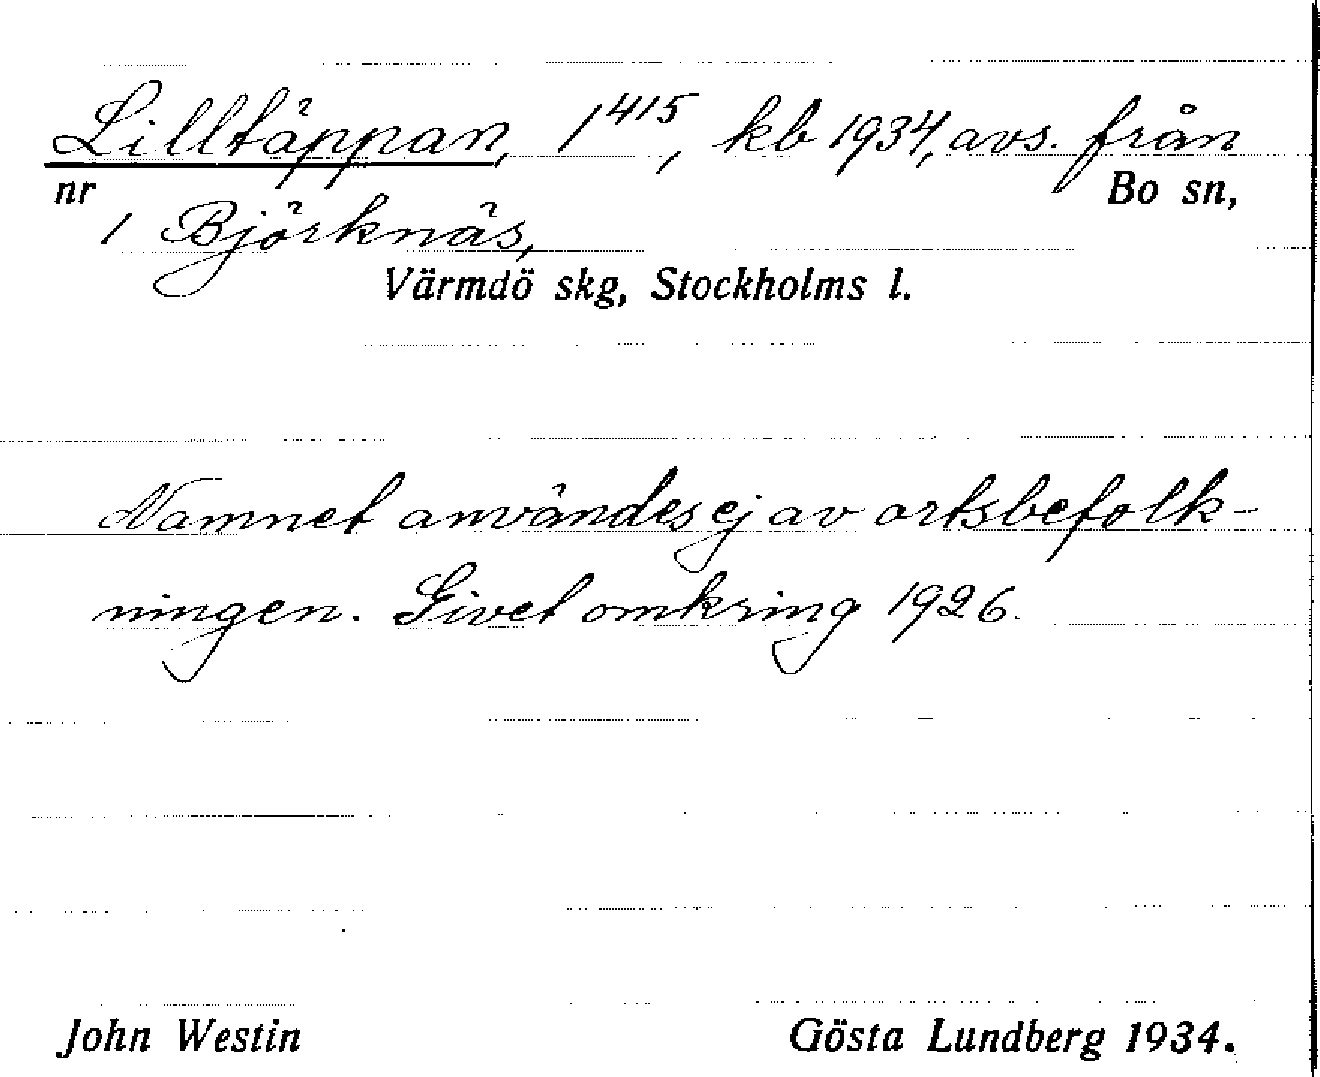 Lilltäppan, 1⁴¹⁵, kb 1934, avs. från
nr Bo sn,
1 Björknäs,
Värmdö skg, Stockholms l.
Namnet användes ej av ortsbefolk-
ningen. Givet omkring 1926.
John Westin Gösta Lundberg 1934.